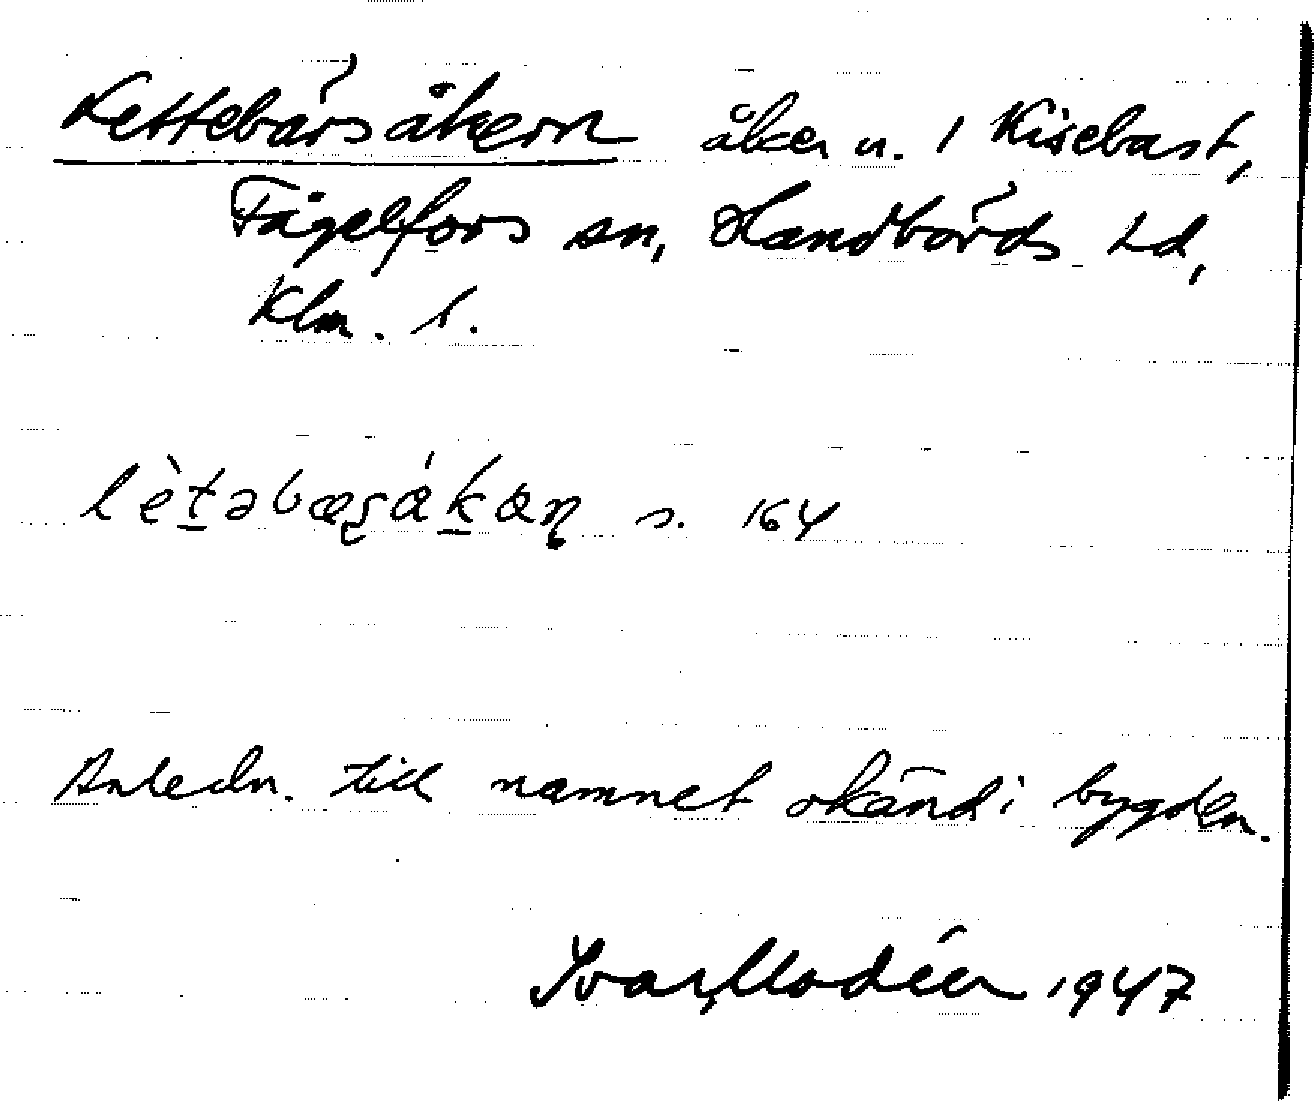 Lettebärsåkern åker n. 1 Kisebast,
Fågelfors sn, Handbörds hd,
Klm. l.
lètəbæʂákæɳ s. 164
Anledn. till namnet okänd i bygden.
Ivar Modéer 1947